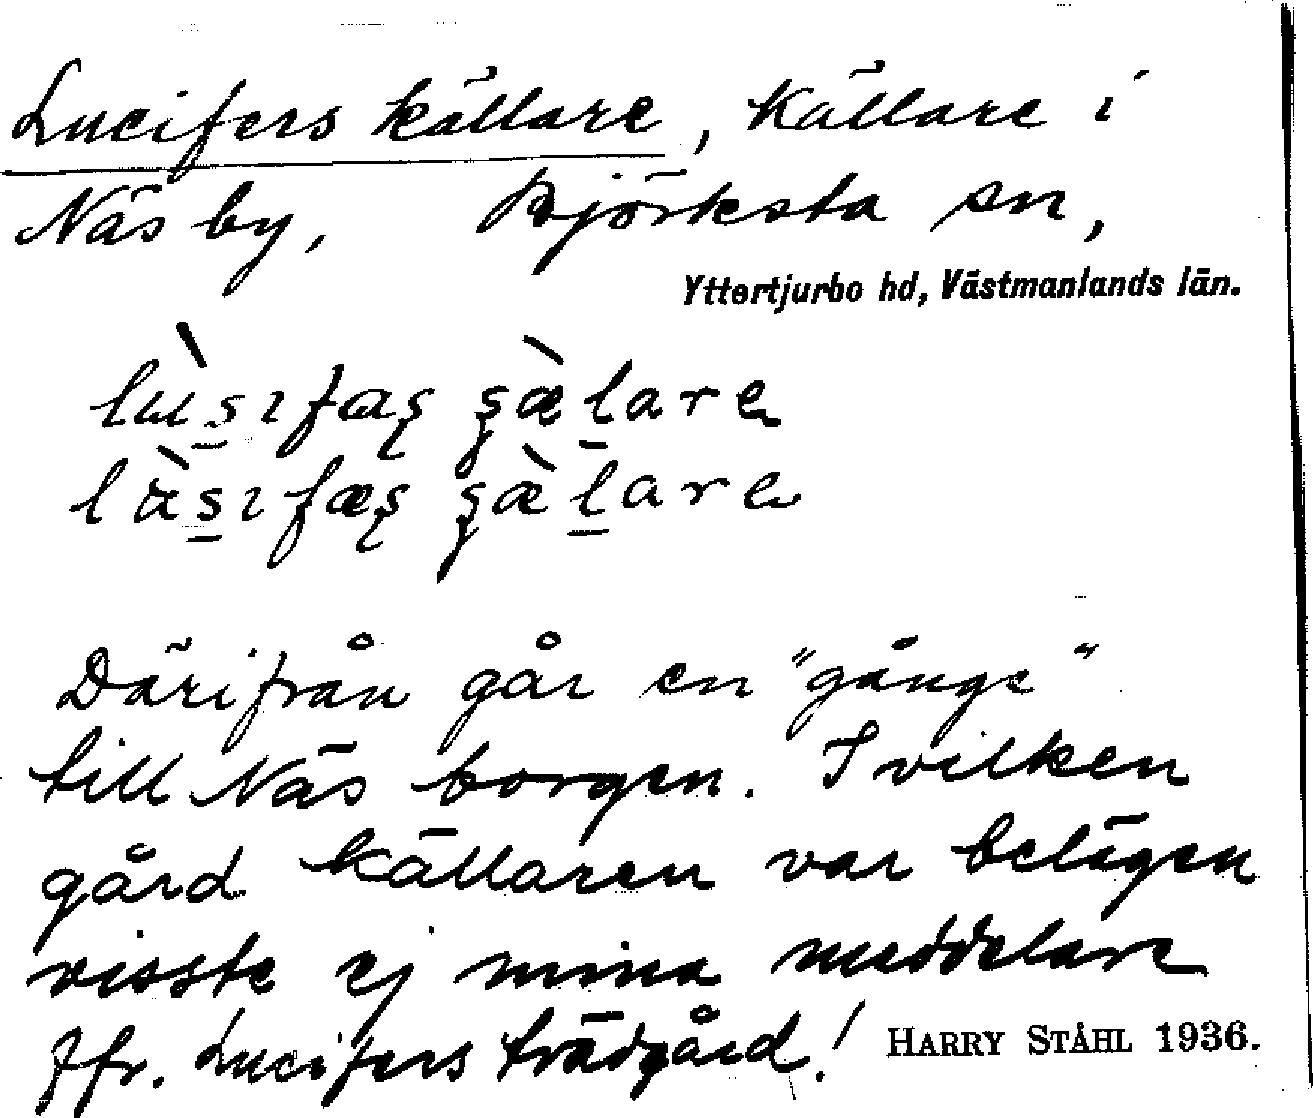 Lucifers källare, källare i
Näs by, Björksta sn,
Yttertjurbo hd, Västmanlands län.
Därifrån går en "gånge"
till Näs borgen. I vilken
gård källaren var belägen
visste ej mina meddelare
Jfr. Lucifers trädgård!
HARRY STÅHL 1936.